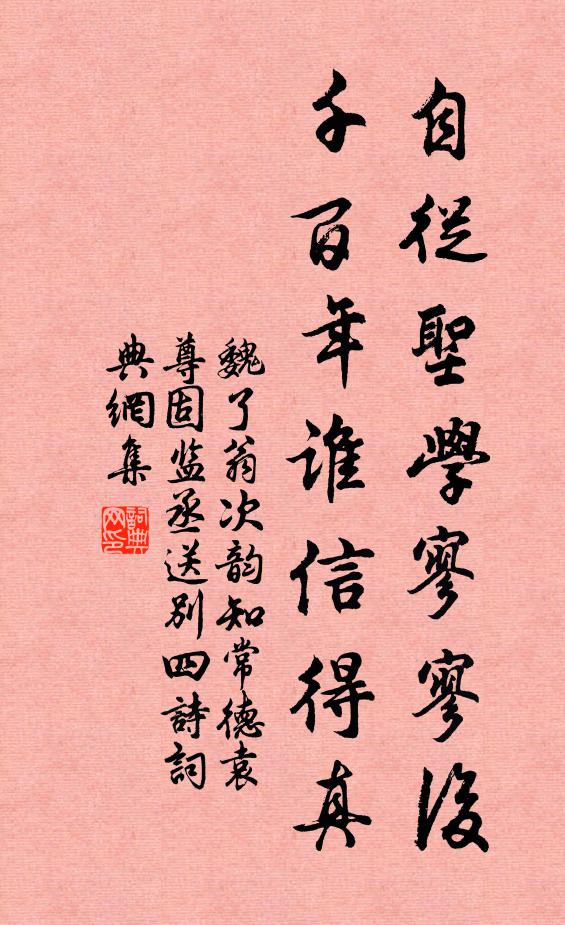 自從聖學寥寥後
千百年誰信得真
魏了翁次韵知常德袁
尊固监丞送别四詩詞
典網集
詞典网印